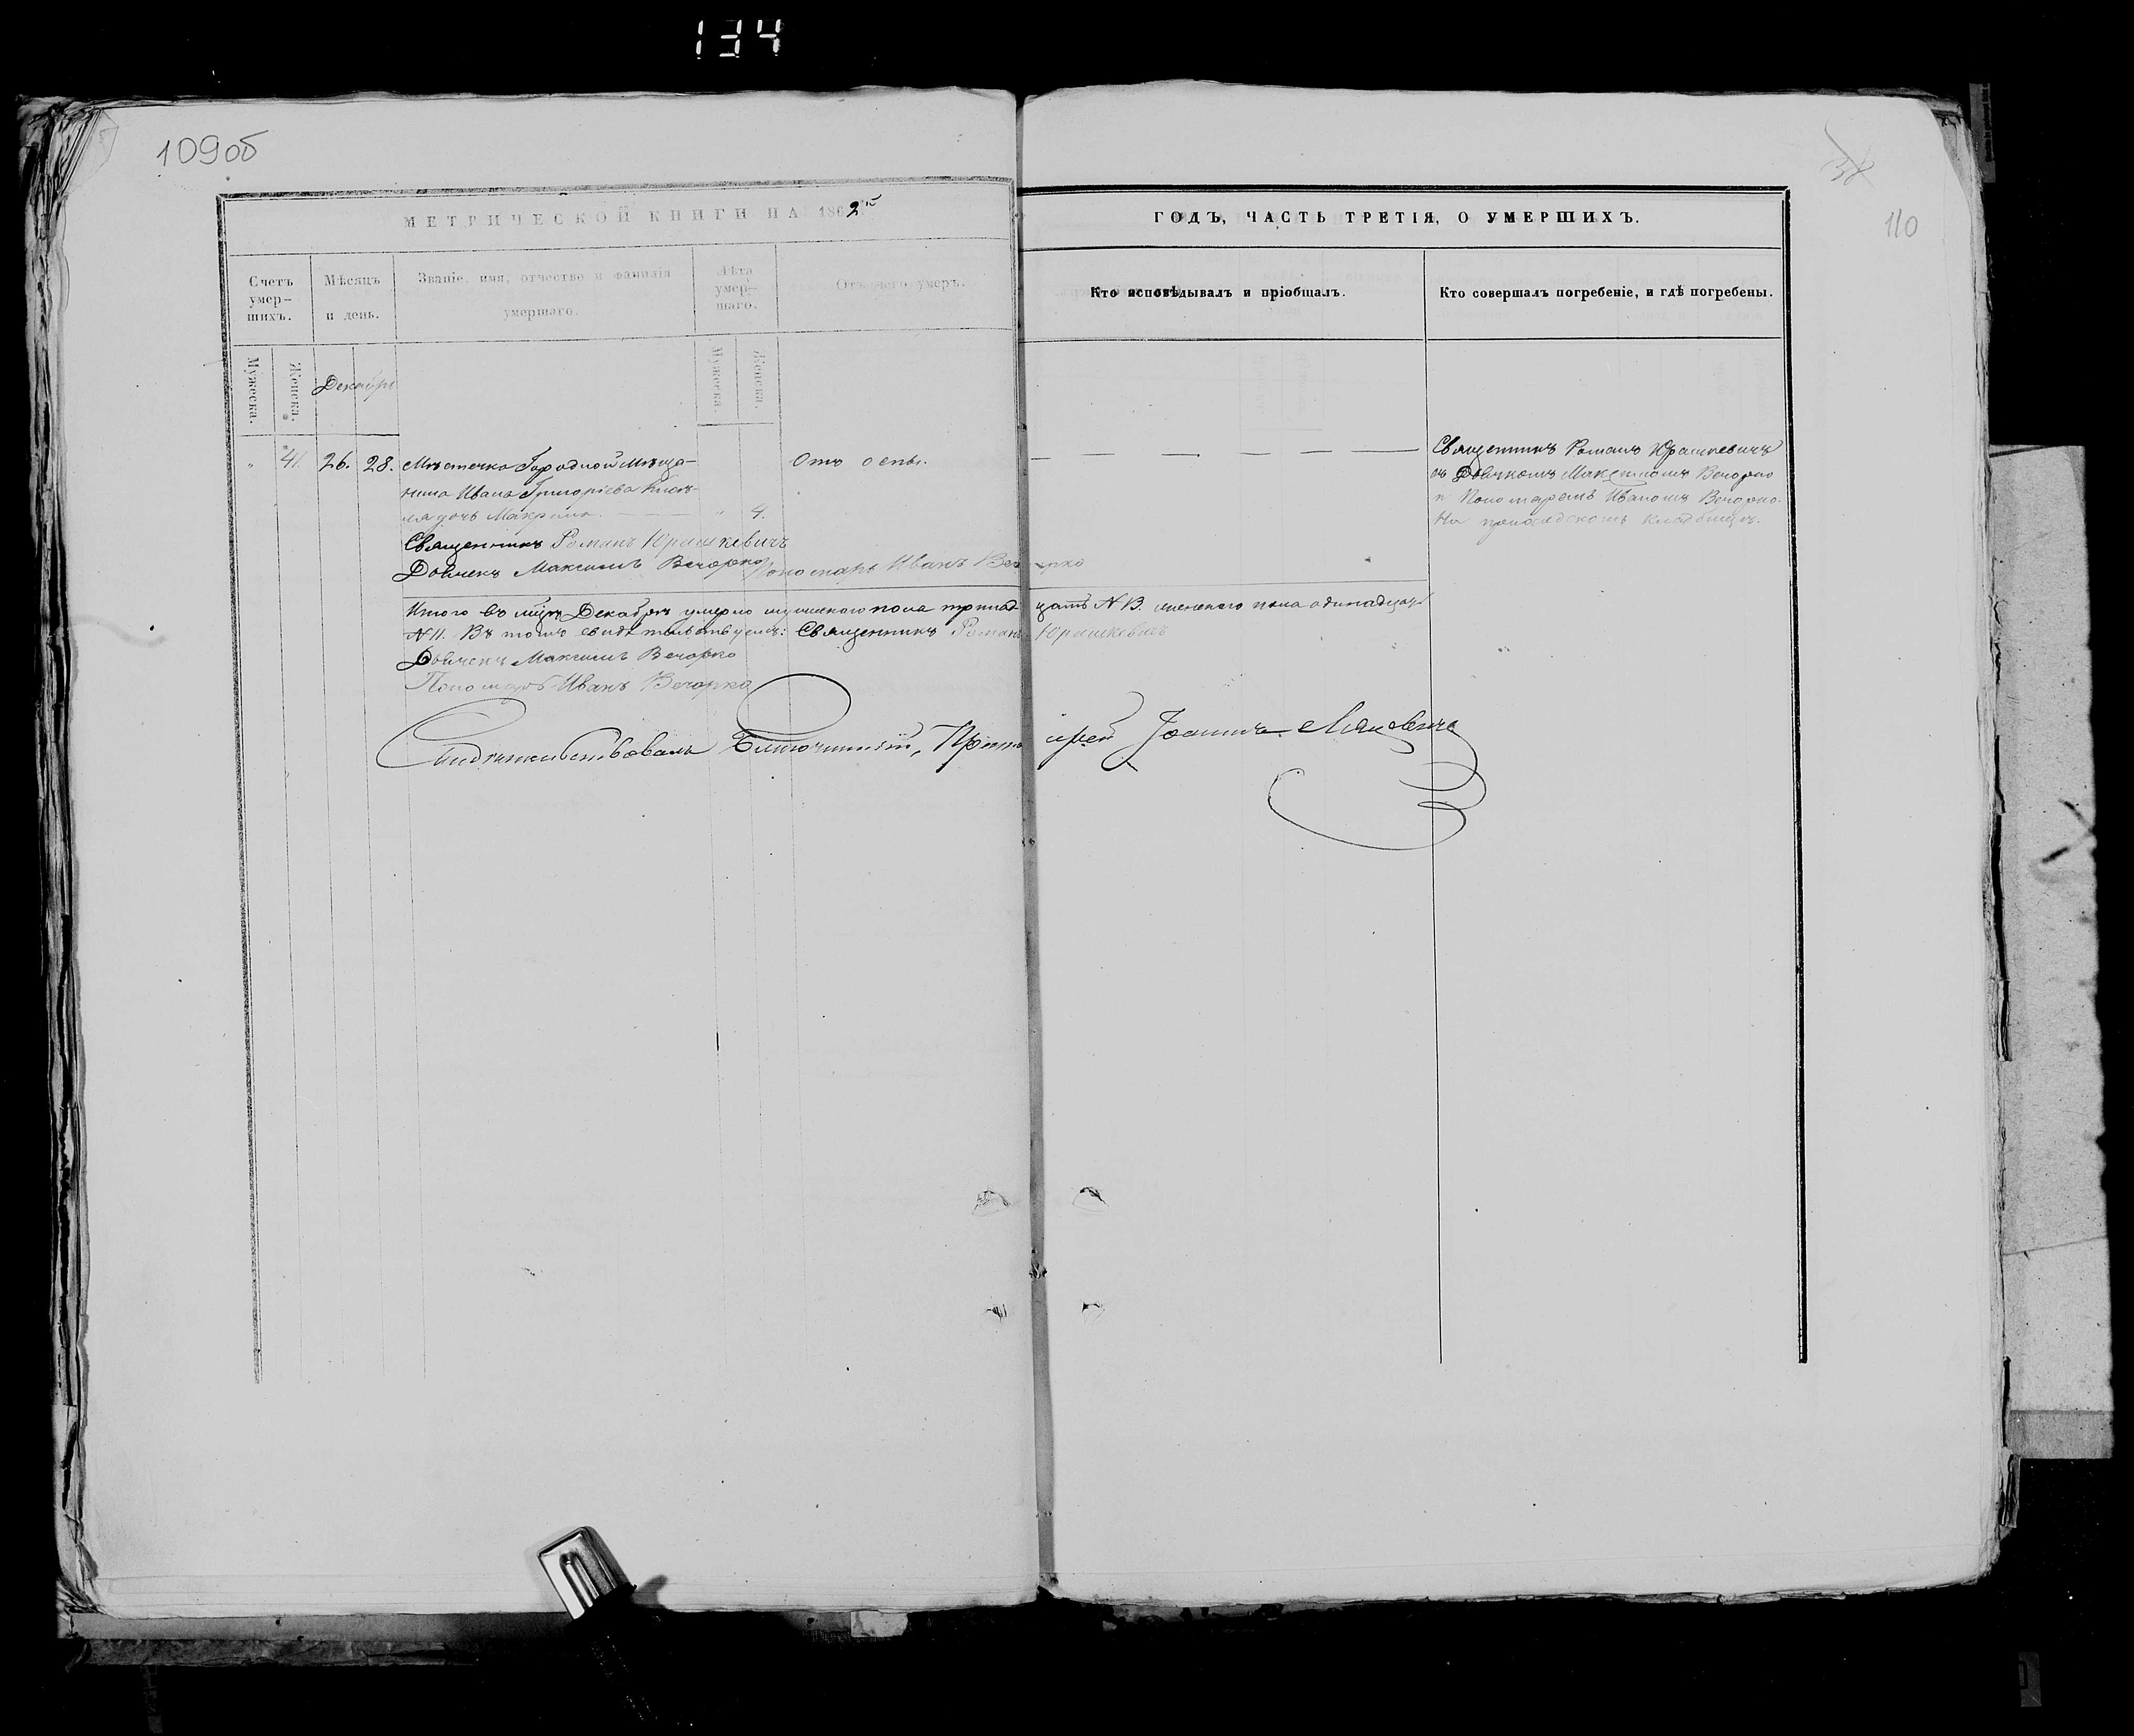 134
109об
38
110
МЕТРИЧЕСКОЙ КНИГИ НА 1862й ГОДЪ, ЧАСТЬ ТРЕТІЯ, О УМЕРШИХЪ.
Счетъ умер-шихъ.
Мѣсяцъ и день.
Званіе, имя, отчество и фамилія умершаго.
Лѣта умер-шаго.
Отъ чего умеръ.
Кто исповѣдывалъ и пріобщалъ.
Кто совершалъ погребеніе, и гдѣ погребены.
Мужеска.
Женска.
Декабрь
Мужеска.
Женска.
" 41. 26. 28. Мѣстечка Городной мѣща-
нина Ивана Григоріева
дочь Макрина. " 4.
Отъ оспы.
Священникъ Романъ Юрашкевичъ
съ Дьячкомъ Максимомъ Вечорко
и Пономаремъ Иваномъ Вечорко.
На приходскомъ кладбищѣ.
Священникъ Романъ Юрашкевичъ
Дьячекъ Максимъ Вечорко Пономарь Иванъ Вечорко
Итого въ мцѣ Декабрѣ умерло мужескаго пола тринадцать N 13. женскаго пола одинадцать
N 11. Въ томъ свидѣтельствуемъ: Священникъ Романъ Юрашкевичъ
Дьячекъ Максимъ Вечорко
Пономарь Иванъ Вечорко
Свидѣтельствовалъ Благочинный, Протоіерей Іоаннъ